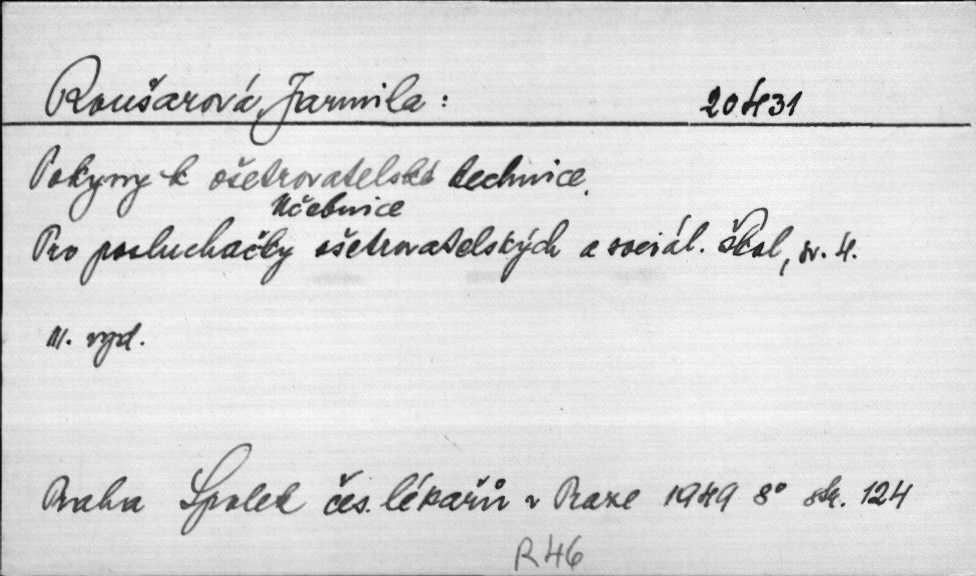 Roušarová, Jarmila: 20431
Pokyny k ošetrovatelské technice.
Učebnice
Pro posluchačky ošetrovatelských a sociál. škol, sv. 4.
III. vyd.
Praha Spolek čes. lékařů v Praze 1949 8° str. 124
R46